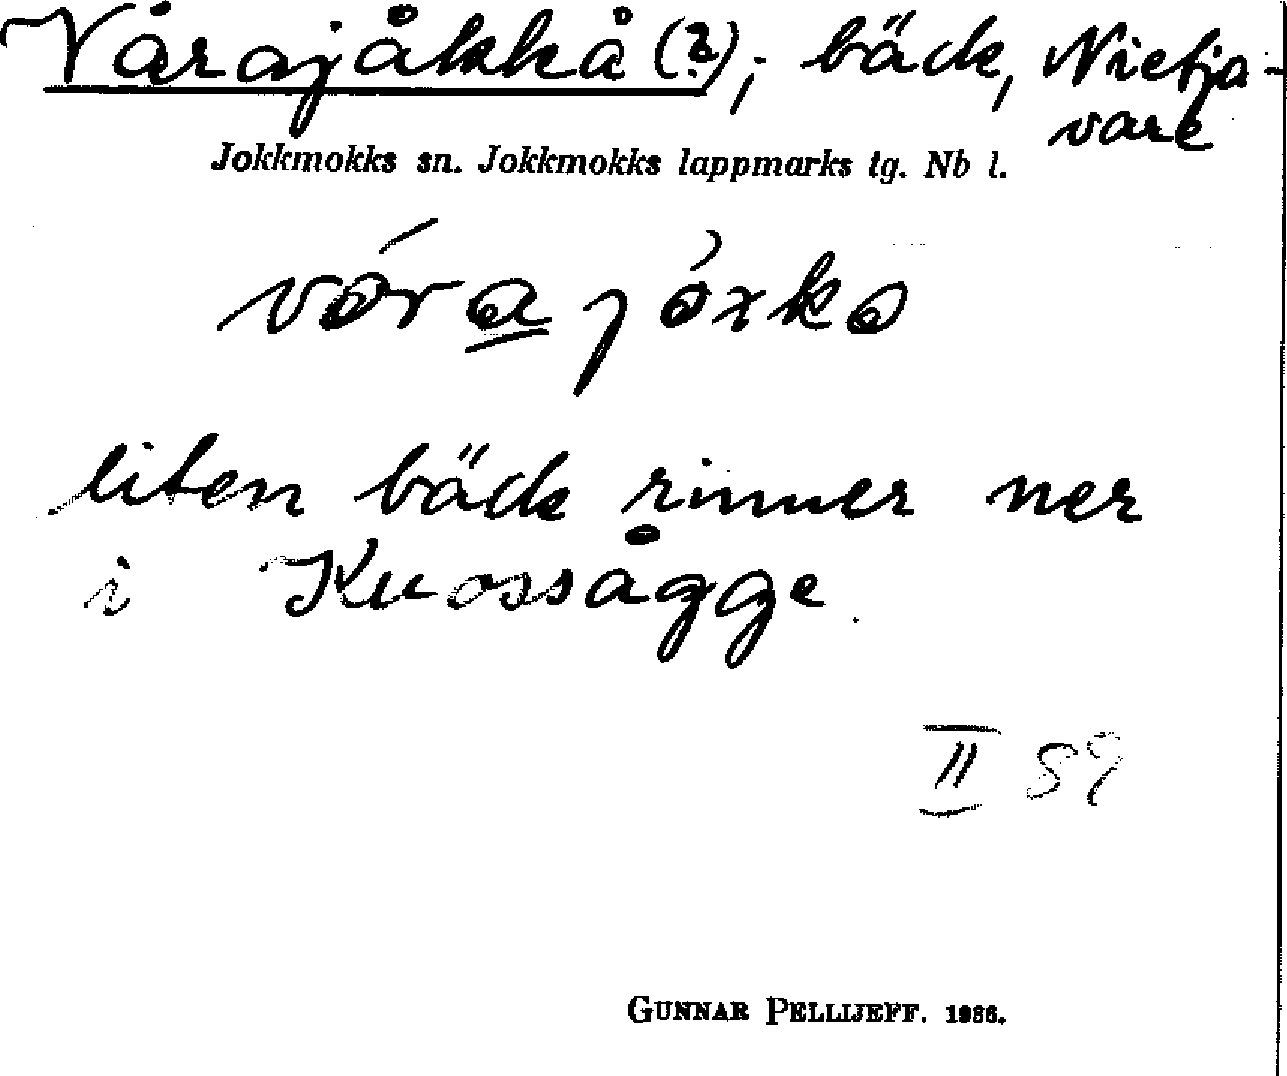 Vårajåkkå (?), bäck, Nietja-
vare
Jokkmokks sn. Jokkmokks lappmarks tg. Nb l.
várajòxkɷ
liten bäck rinner ner
i Kuossågge.
II 59
GUNNAR PELLIJEFF. 1966.